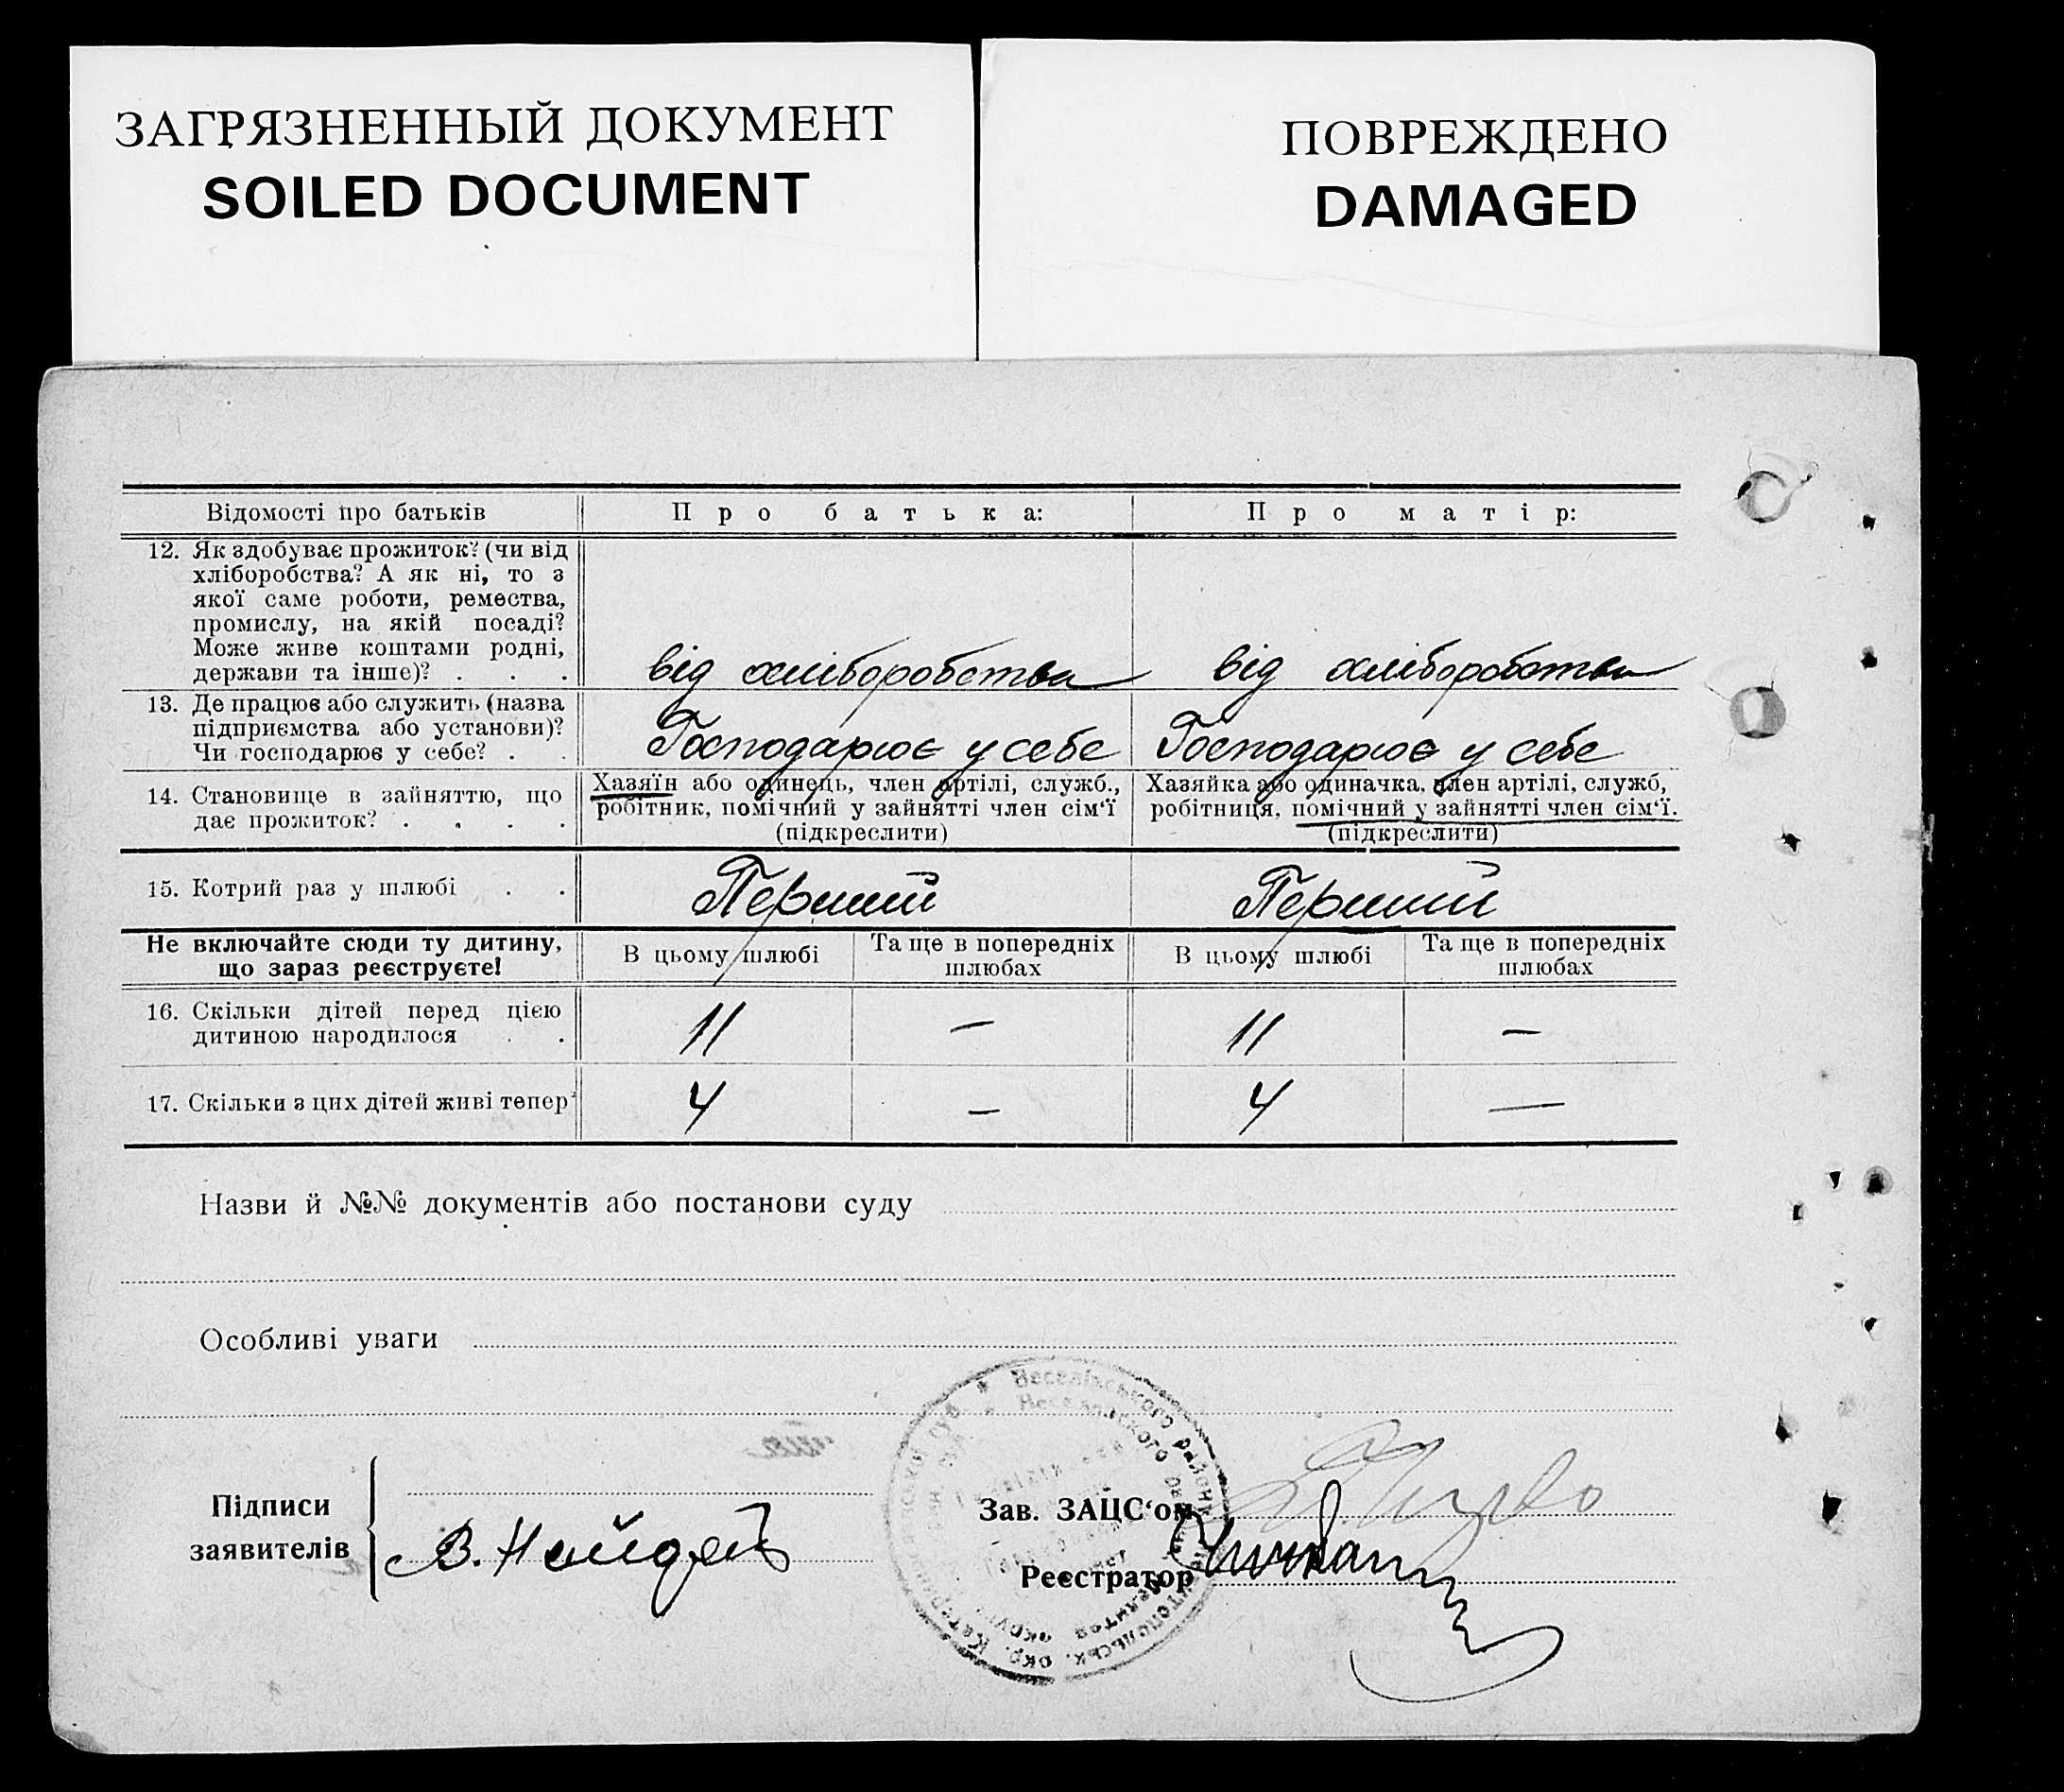 ЗАГРЯЗНЕННЫЙ ДОКУМЕНТ
SOILED DOCUMENT
ПОВРЕЖДЕНО
DAMAGED
Відомості про батьків
Про батька:
Про матір:
12. Як здобуває прожиток? (чи від
хліборобства? А як ні, то з
якої саме роботи, ремества,
промислу, на якій посаді?
Може живе коштами родні,
держави та інше)? . . .
від хліборобства
від хліборобства
13. Де працює або служить (назва
підприємства або установи)?
Чи господарює у себе? . .
Господарює у себе
Господарює у себе
14. Становище в зайняттю, що
дає прожиток? . . . .
Хазяїн або одинець, член артілі, служб.,
робітник, помічний у зайнятті член сім'ї
(підкреслити)
Хазяйка або одиначка, член артілі, служб,
робітниця, помічний у зайнятті член сім'ї.
(підкреслити)
15. Котрий раз у шлюбі . .
Перший
Перший
Не включайте сюди ту дитину,
що зараз реєструєте!
В цьому шлюбі
Та ще в попередніх
шлюбах
В цьому шлюбі
Та ще в попередніх
шлюбах
16. Скільки дітей перед цією
дитиною народилося . .
11
—
11
—
17. Скільки з цих дітей живі тепер?
4
—
4
—
Назви й №№ документів або постанови суду
Особливі уваги
Підписи
заявителів
В.
Зав. ЗАЦС'ом
Реєстратор